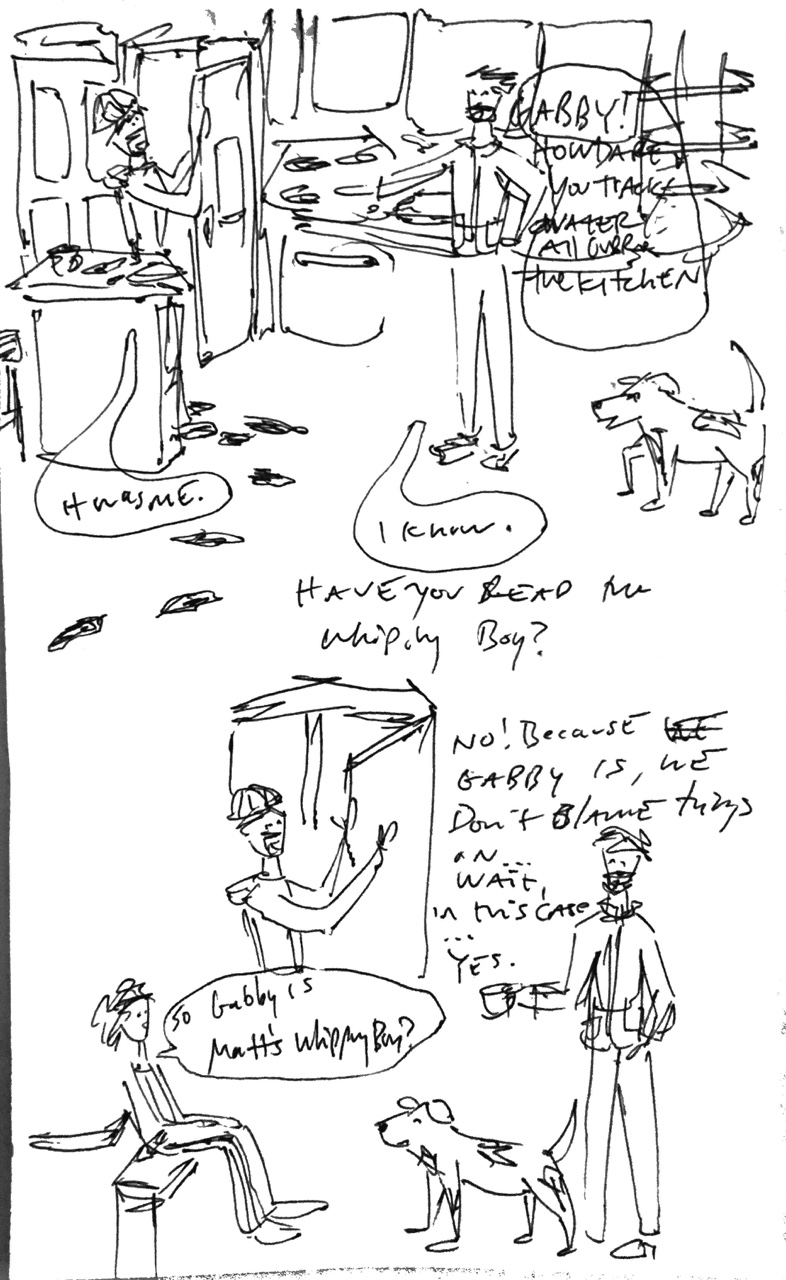 GABBY!
HOW DARE
YOU TRACK
WATER
All OVER
the KITCHEN
It was ME.
I know.
HAVE YOU READ the
Whipping Boy?
NO! Because
GABBY IS, WE
Don't Blame things
on...
WAIT,
in this CASE
...
YES.
So Gabby is
Matt's Whipping Boy?